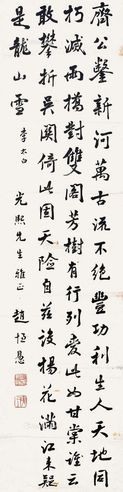 齊公鑿新河萬古流不絕豐功利生人天地同
朽滅兩橋對雙閣芳樹有行列愛此如甘棠誰云
敢攀折吳關倚此固天險自茲設楊花滿江來疑
是龍山雪 李太白 光熙先生雅正 趙恆惕